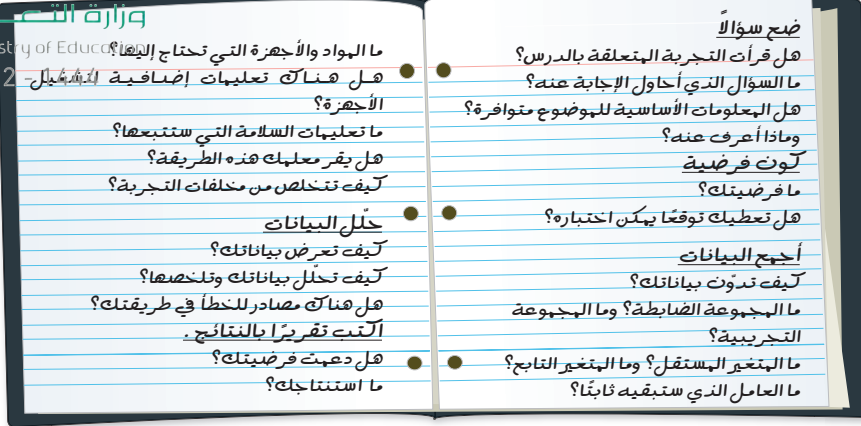 ضع سؤالاً
هل قرأت التجربة المتعلقة بالدرس؟
ما السؤال الذي أحاول الإجابة عنه؟
هل المعلومات الأساسية للموضوع متوافرة؟
وماذا أعرف عنه؟
كون فرضية
ما فرضيتك؟
هل تعطيك توقعًا يمكن اختباره؟
أجمع البيانات
كيف تدوّن بياناتك؟
ما المجموعة الضابطة؟ وما المجموعة
التجريبية؟
ما المتغير المستقل؟ وما المتغير التابع؟
ما العامل الذي ستبقيه ثابتًا؟
ما المواد والأجهزة التي تحتاج إليها؟
هل هناك تعليمات إضافية لتشغيل
الأجهزة؟
ما تعليمات السلامة التي ستتبعها؟
هل يقر معلمك هذه الطريقة؟
كيف تتخلص من مخلفات التجربة؟
حلّل البيانات
كيف تعرض بياناتك؟
كيف تحلّل بياناتك وتلخصها؟
هل هناك مصادر للخطأ في طريقتك؟
اكتب تقريرًا بالنتائج .
هل دعمت فرضيتك؟
ما استنتاجك؟
وزارة التعـ
stry of Education
2 - 1444